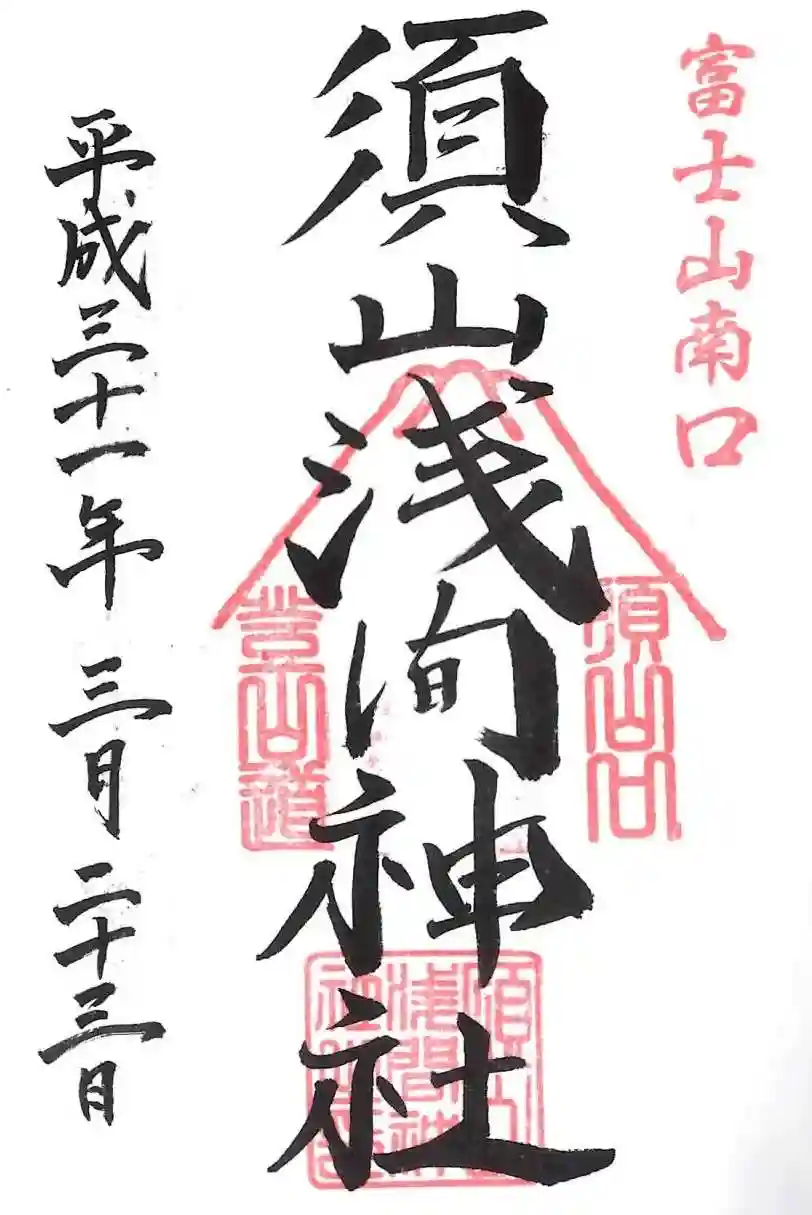 富士山南口
須山浅间神社
須山口
登山道
平成三十一年 三月 二十三日